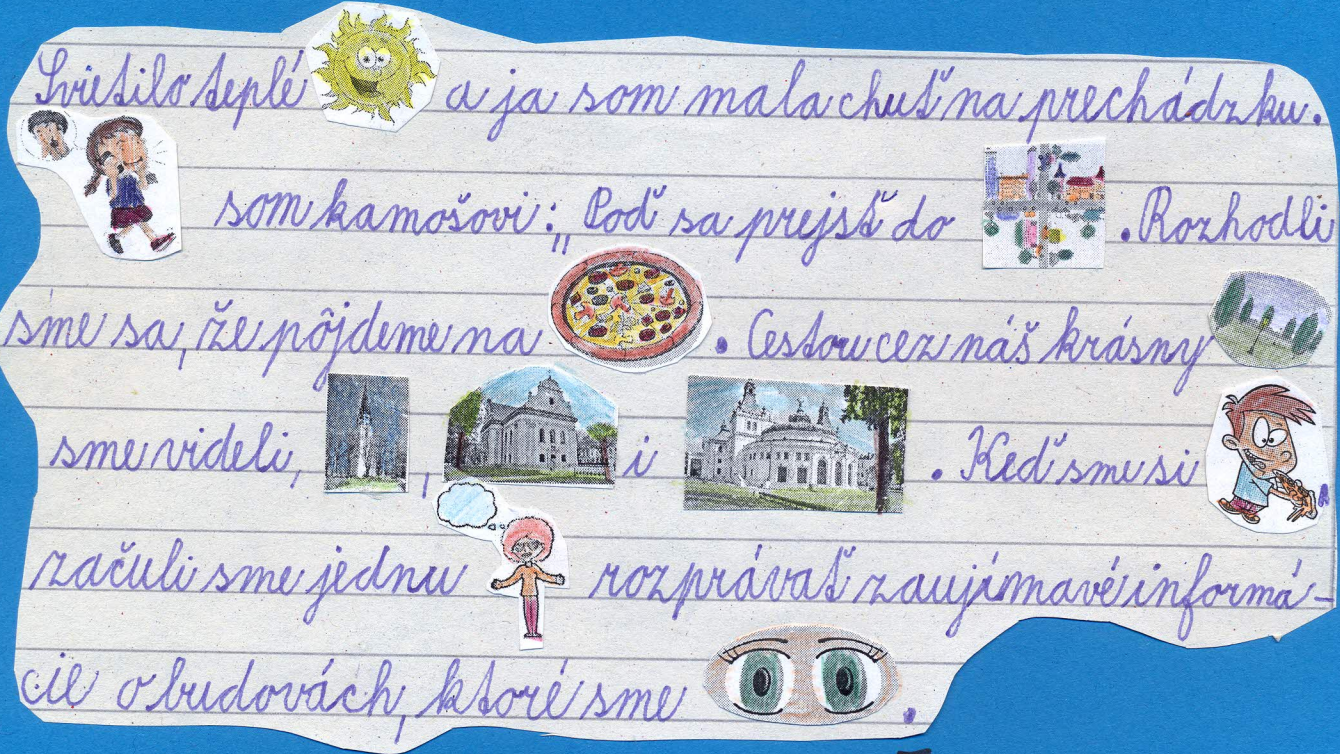 Svietilo teplé a ja som mala chuť na prechádzku.
som kamošovi: „Poď sa prejsť do . Rozhodli
sme sa, že pôjdeme na . Cestou cez náš krásny
sme videli, , i . Keď sme si ,
začuli sme jednu rozprávať zaujímavé informá-
cie o budovách, ktoré sme .